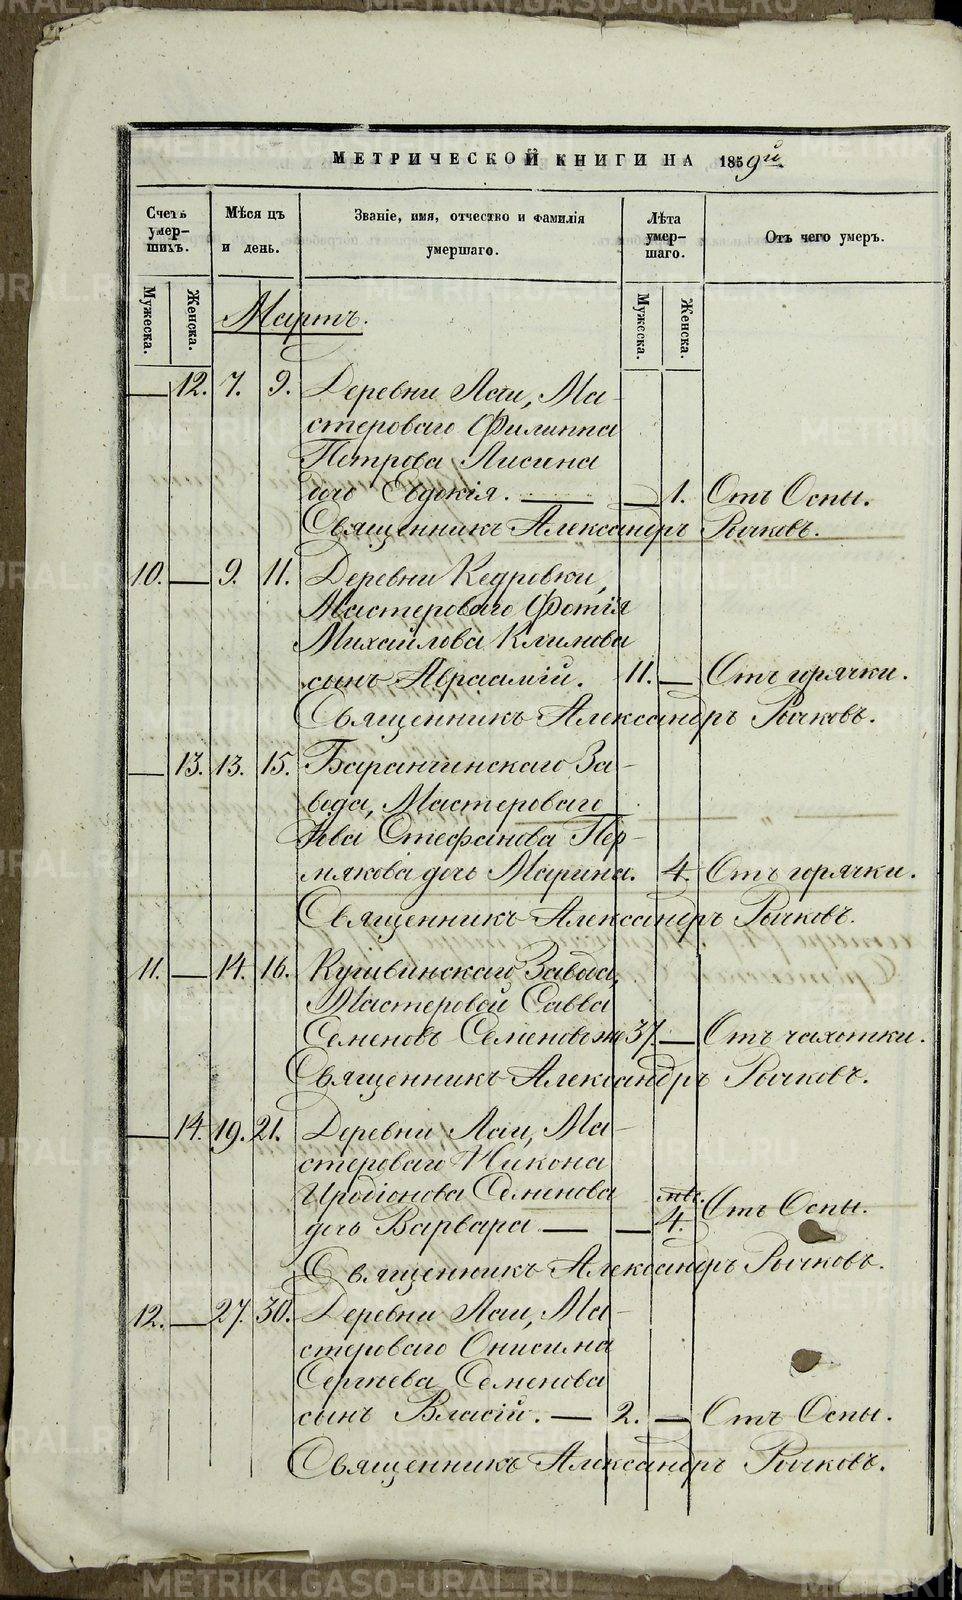 МЕТРИЧЕСКОЙ КНИГИ НА 1859й
Счетъ умер-шихъ. Мѣсяцъ и день. Званіе, имя, отчество и фамилія умершаго. Лѣта умер-шаго. Отъ чего умеръ.
Мужеска. Женска. Мужеска. Женска.
Мартъ.
— 12. 7. 9. Деревни Лаи, Ма-
стероваго Филиппа
Петрова Лисина
дочь Евдокія. — — 1. Отъ Оспы.
Священникъ Александръ Рычковъ.
10. — 9. 11. Деревни Кедровки,
Мастероваго Фотія
Михайлова Климова
сынъ Авраамій. 11. — Отъ горячки.
Священникъ Александръ Рычковъ.
— 13. 13. 15. Баранчинскаго За-
вода, Мастероваго
Іева Стефанова Пер-
мякова дочь Марина. 4. Отъ горячки.
Священникъ Александръ Рычковъ.
11. — 14. 16. Кушвинскаго Завода,
Мастеровой Савва
Семеновъ Семеновъ 37. — Отъ чахотки.
Священникъ Александръ Рычковъ.
— 14. 19. 21. Деревни Лаи, Ма-
стероваго Никона
Иродіонова Семенова мѣс.
дочь Варвара — — 4. Отъ Оспы.
Священникъ Александръ Рычковъ.
12. — 27. 30. Деревни Лаи, Ма-
стероваго Онисима
Сергѣева Семенова
сынъ Власій. — 2. — Отъ Оспы.
Священникъ Александръ Рычковъ.
METRIKI.GASO-URAL.RU